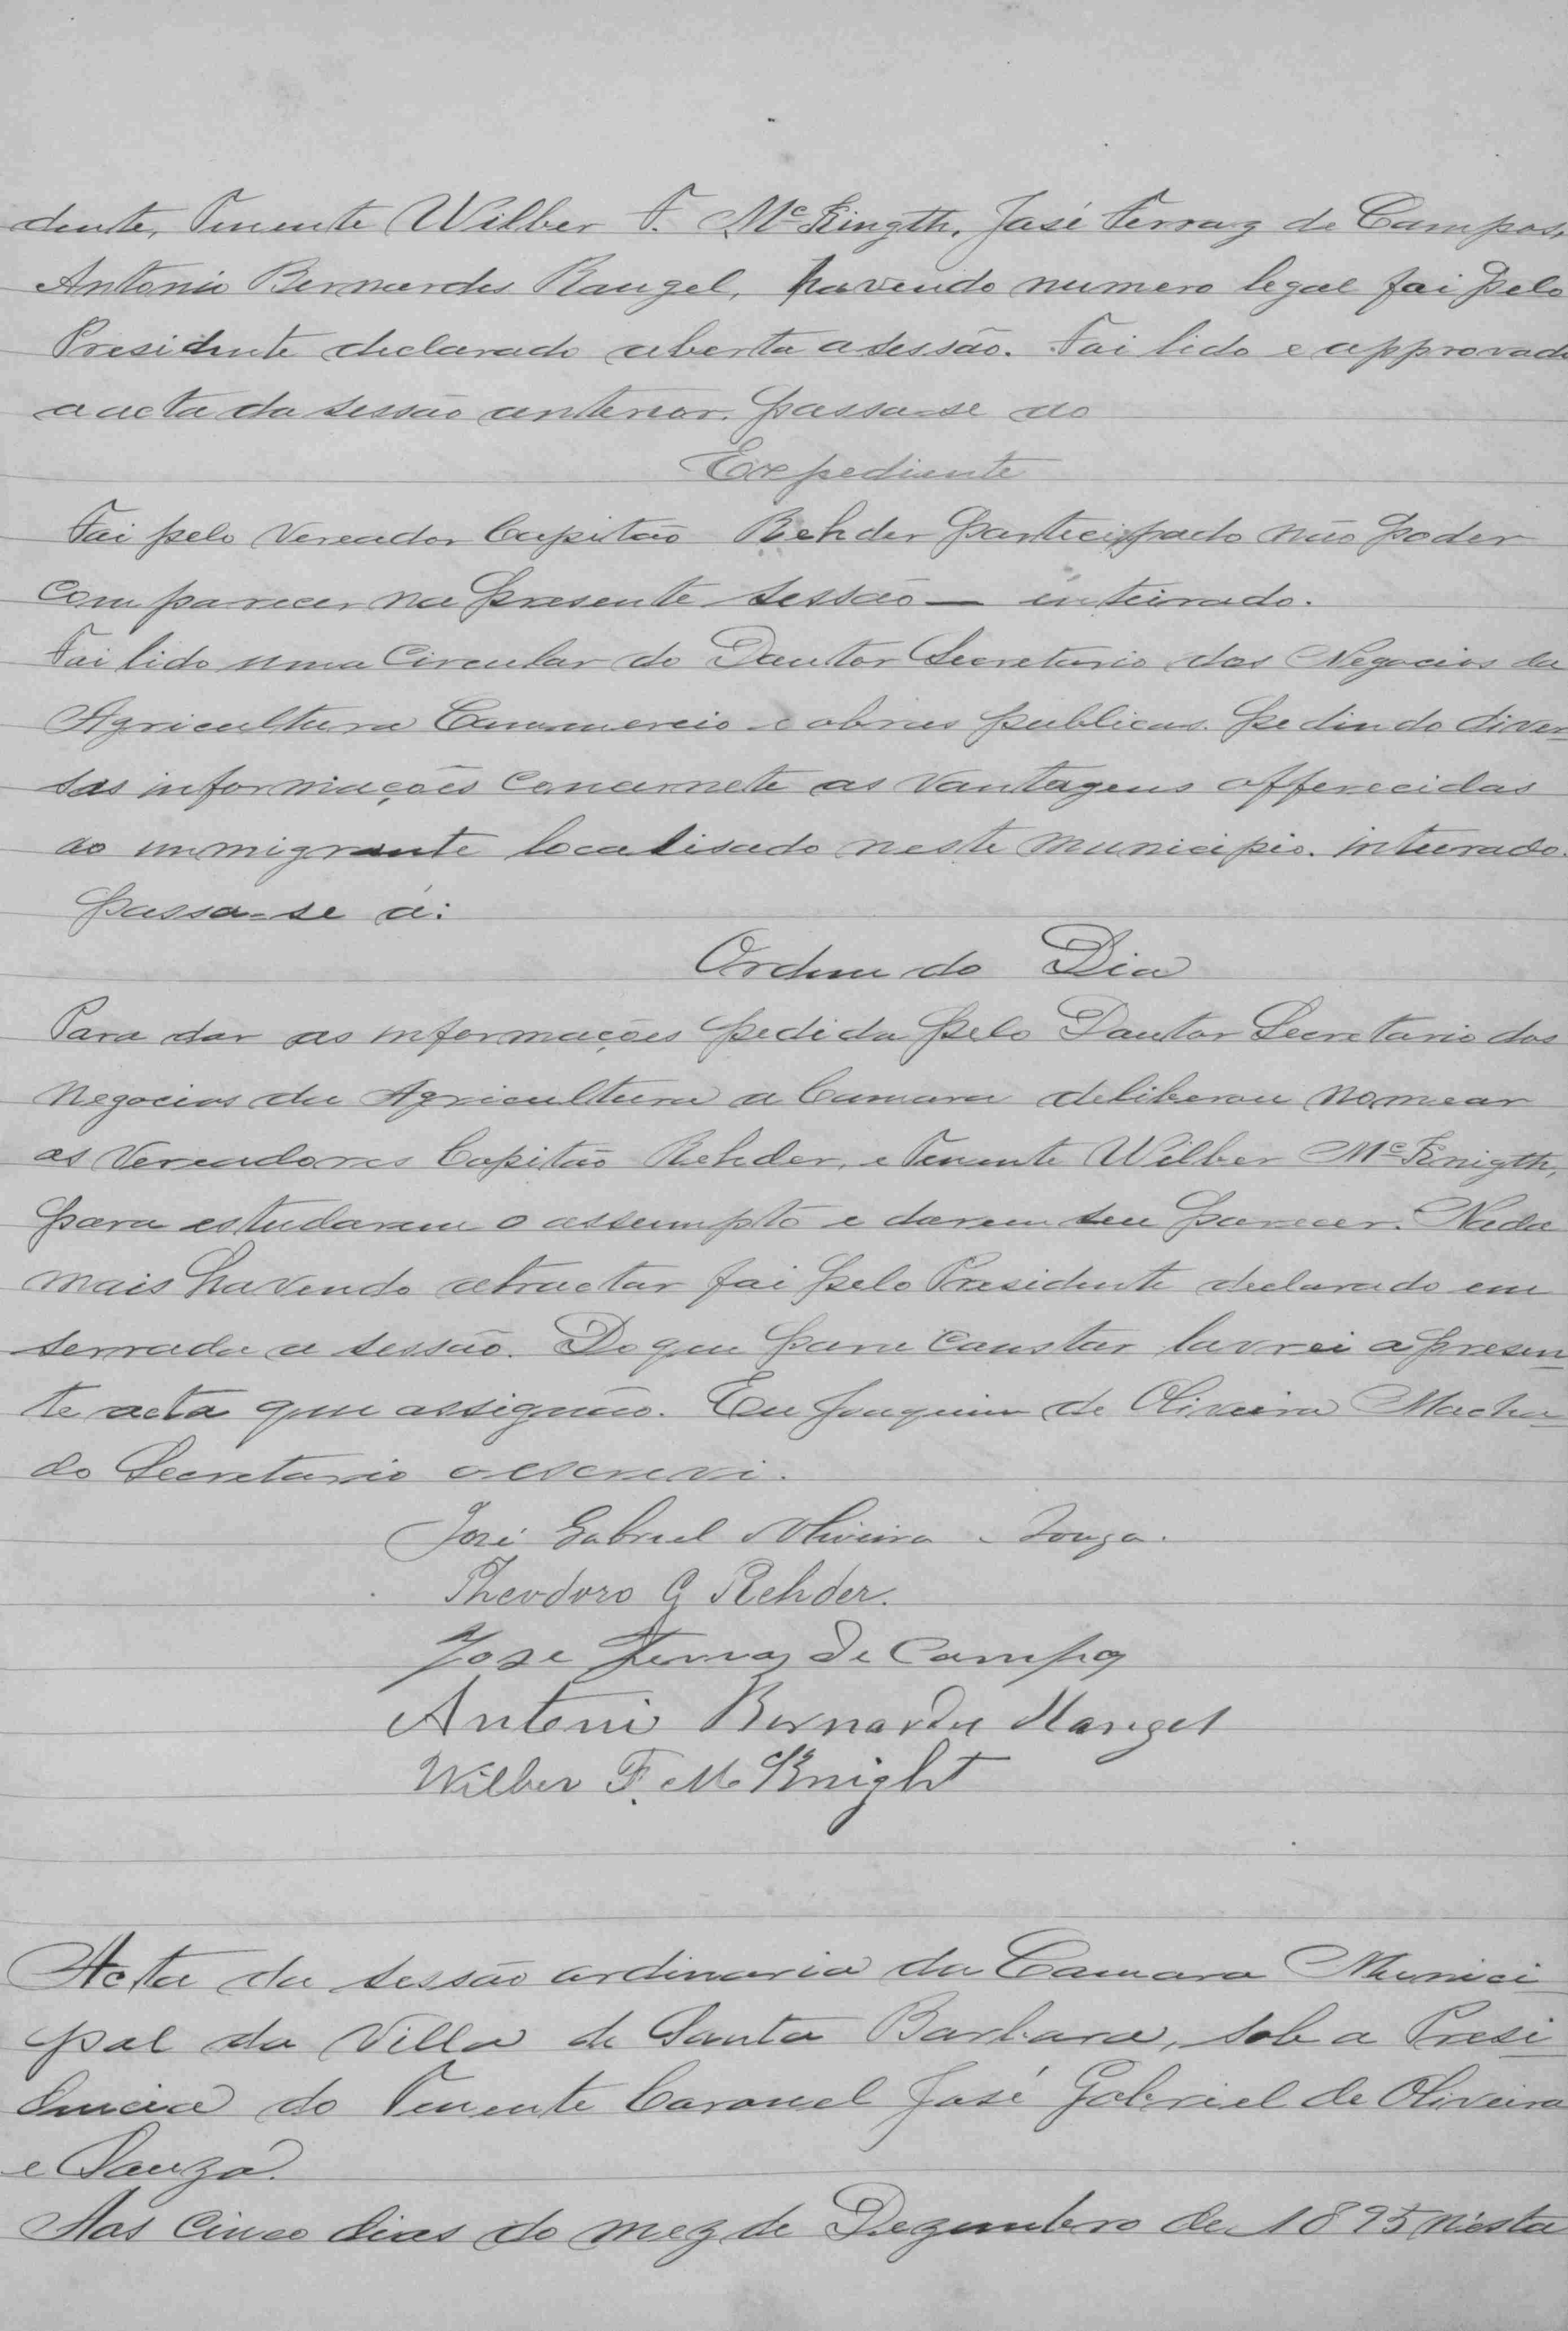 dente, Tenente Wilber F. McKingth, José Ferraz de Campos,
Antonio Bernardes Rangel, havendo numero legal foi pelo
Presidente declarado aberta a sessão. Foi lido e approvado
a acta da sessão anterior. Passa-se ao
Expediente
Foi pelo Vereador Capitão Rehder participado não poder
comparecer na presente sessão — inteirado.
Foi lido uma Circular do Doutor Secretario dos Negocios da
Agricultura Commercio e obras publicas. pedindo diver-
sas informações concernete as vantagens offerecidas
ao immigrante localisado neste municipio. inteirado.
Passa-se á:
Ordem do Dia
Para dar as informações pedida pelo Doutor Secretario dos
Negocios da Agricultura a Camara deliberou nomear
os Vereadores Capitão Rehder, e Tenente Wilber McKnigth,
para estudarem o assumpto e darem seu parecer. Nada
mais havendo atractar foi pelo Presidente declarado em
serrada a sessão. Do que para constar lavrei a presen-
te acta que assignão. Eu Joaquim de Oliveira Macha-
do Secretario o escrevi.
José Gabriel Oliveira e Souza.
Theodoro G Rehder.
Jose Ferraz de Campos
Antonio Bernardes Rangel
Wilber F. McKnight
Acta da sessão ordinaria da Camara Munici-
pal da Villa de Santa Barbara, sob a Presi-
dencia do Tenente Coronel José Gabriel de Oliveira
e Souza.
Aos cinco dias do mez de Dezembro de 1895 n'esta